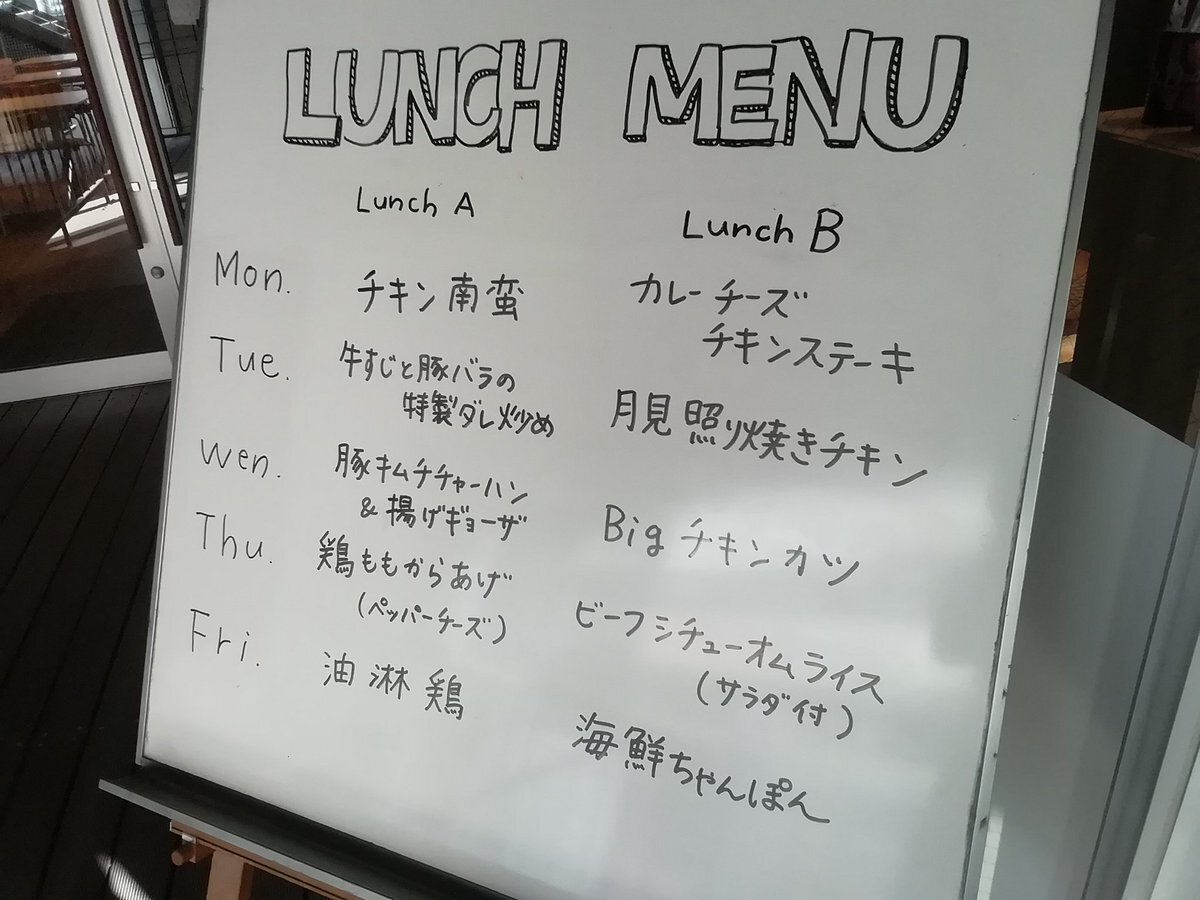 LUNCH MENU
Lunch A
Lunch B
Mon.
チキン南蛮
カレーチーズ
チキンステーキ
Tue.
牛すじと豚バラの
特製ダレ炒め
月見照り焼きチキン
Wen.
豚キムチチャーハン
&揚げギョーザ
Big チキンカツ
Thu.
鶏ももからあげ
(ペッパーチーズ)
ビーフシチューオムライス
(サラダ付)
Fri.
油淋鶏
海鮮ちゃんぽん